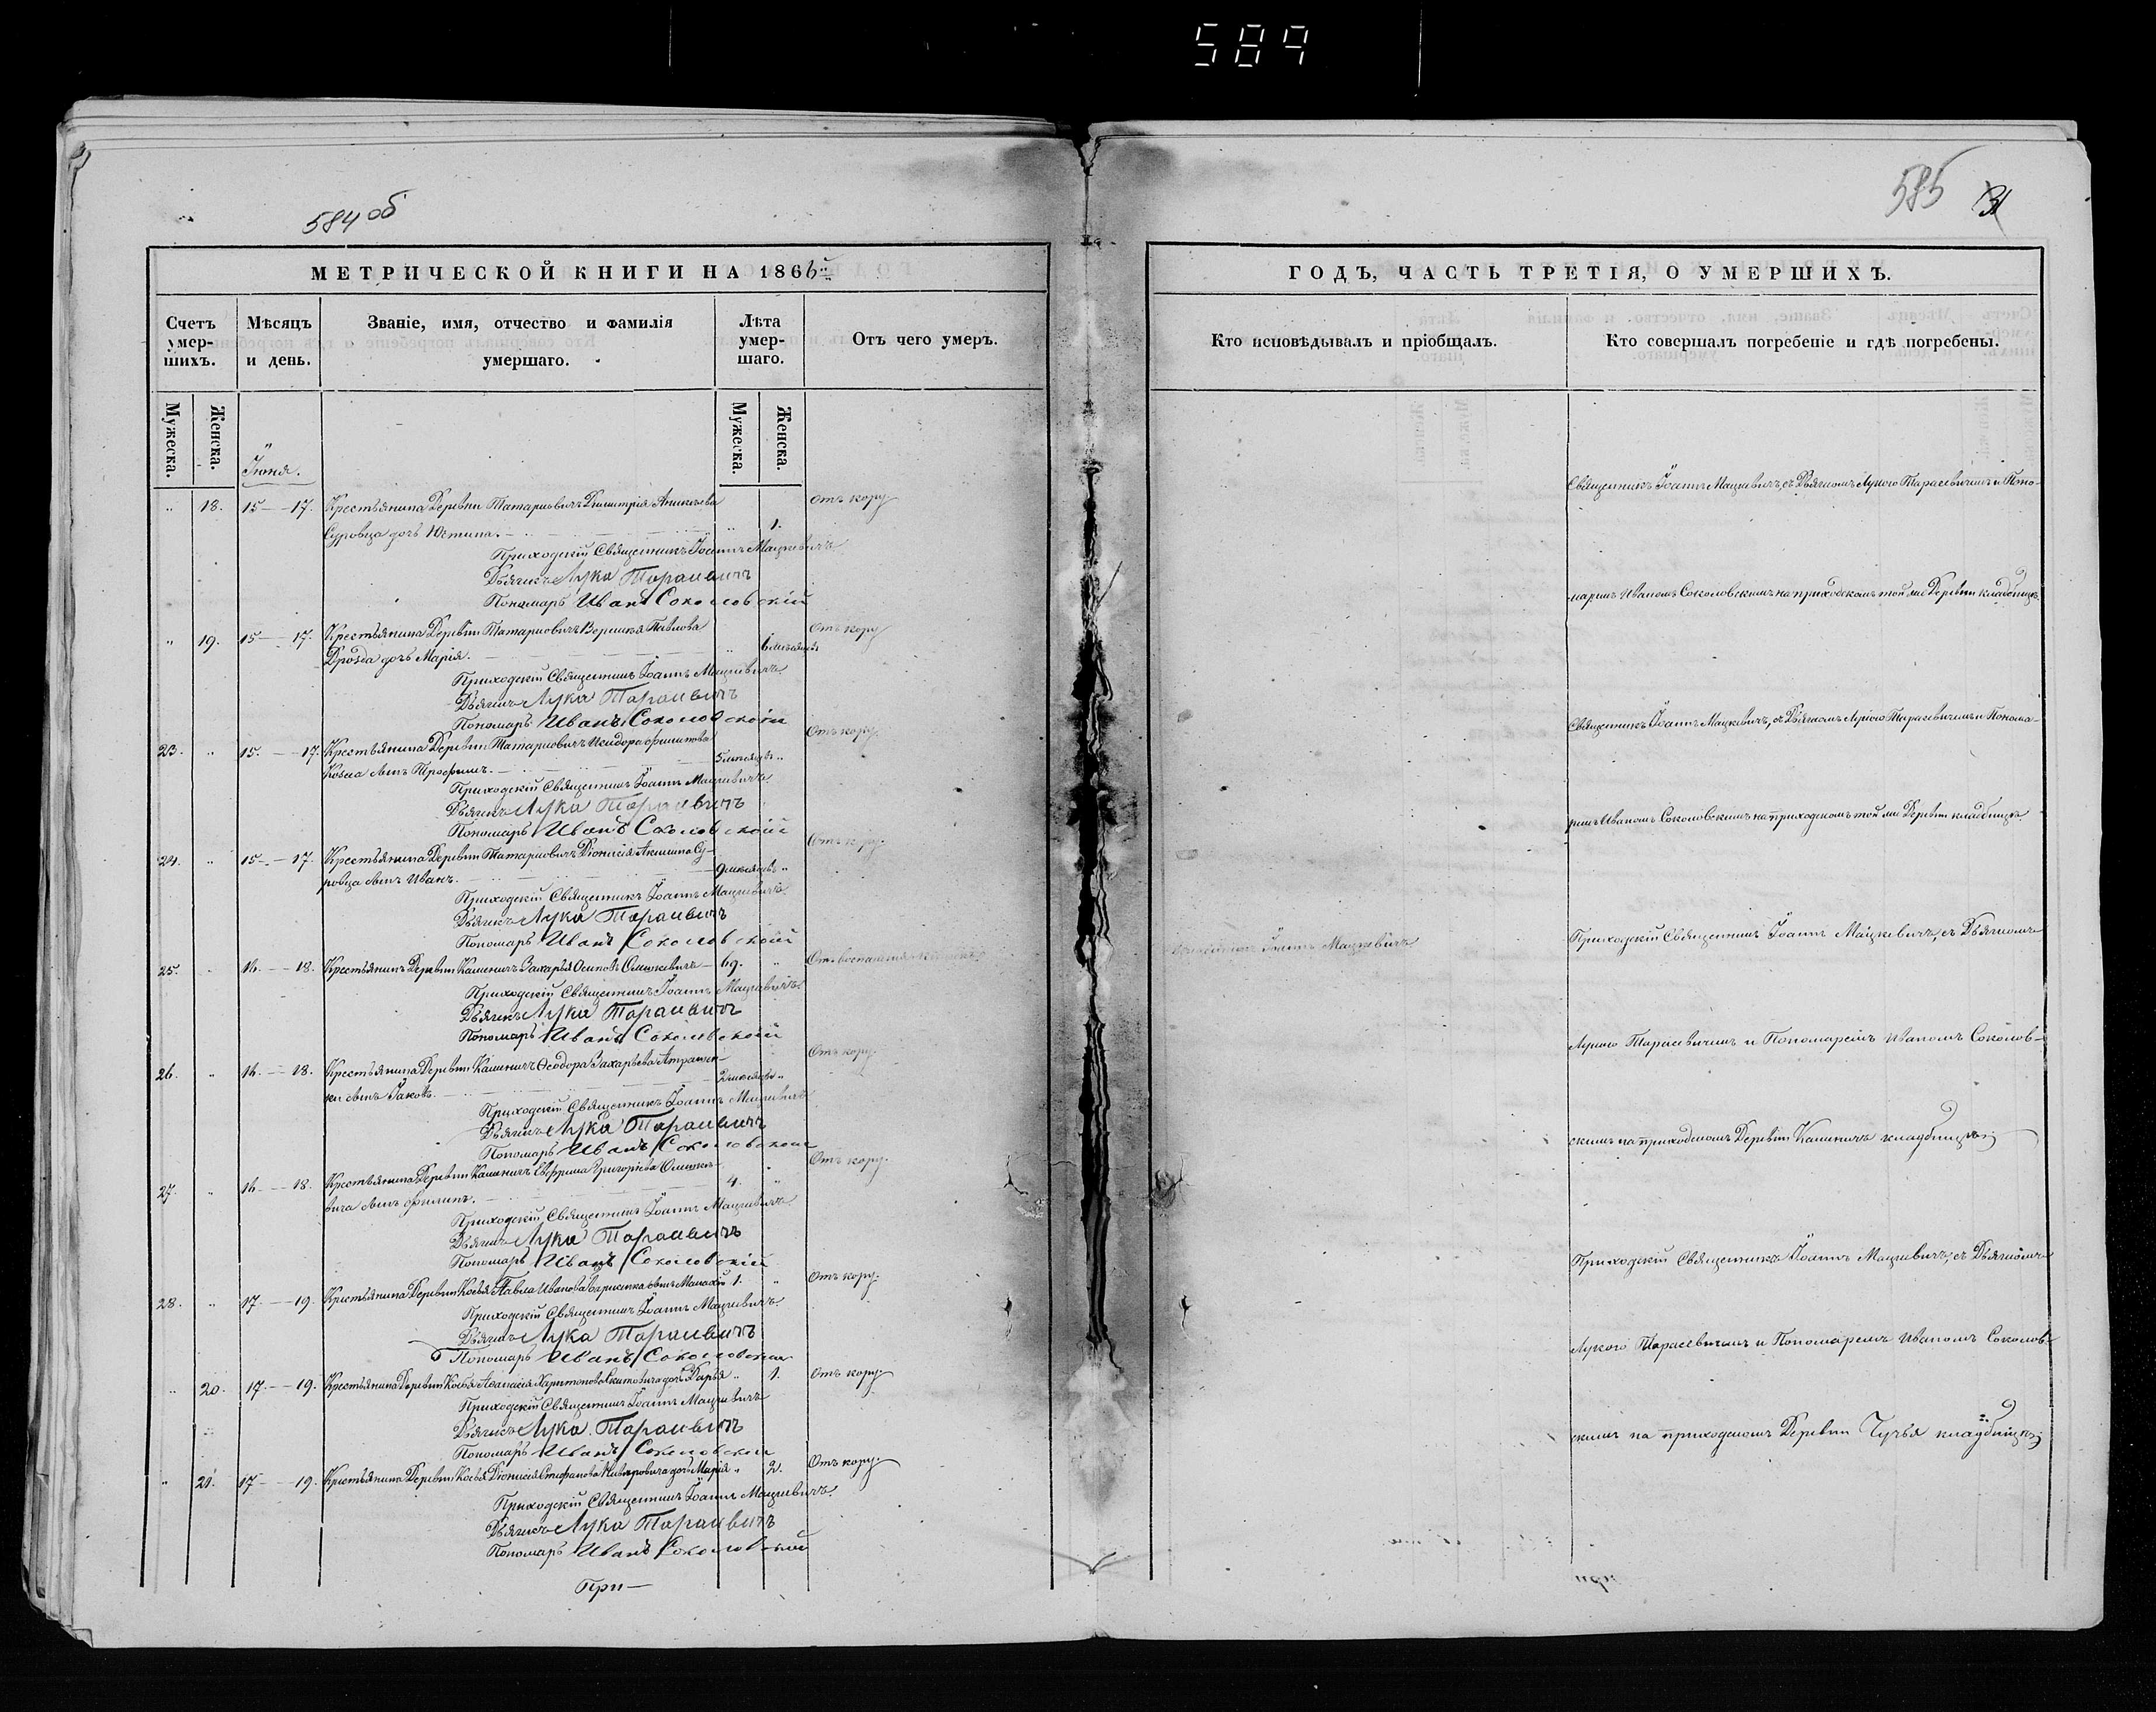 589
584 об
585
31
МЕТРИЧЕСКОЙ КНИГИ НА 1866й
Счетъ умер- шихъ.
Мѣсяцъ и день.
Званіе, имя, отчество и фамилія умершаго.
Лѣта умер- шаго.
Отъ чего умеръ.
Мужеска.
Женска.
Мужеска.
Женска.
Іюня.
" 18. 15 — 17. Крестьянина Деревни Татариовичъ Димитрія Аникѣева Отъ кору
Суровца дочь Юстина. — " 1.
Приходскій Священникъ Іоаннъ Мацкевичъ
Дьячекъ Лука Тарасевичъ
Пономарь Иванъ Соколовскій
" 19. 15 — 17. Крестьянина Деревни Татариовичъ Павлова Отъ кору
Дрозда дочь Марія. — " 6 мѣсяцевъ
Приходскій Священникъ Іоаннъ Мацкевичъ
Дьячекъ Лука Тарасевичъ
Пономарь Иванъ Соколовскій
23. " 15. — 17. Крестьянина Деревни Татариовичъ Исидора Филипова Отъ кору.
Козла сынъ Трофимъ. — 5 мѣсяцевъ "
Приходскій Священникъ Іоаннъ Мацкевичъ
Дьячекъ Лука Тарасевичъ
Пономарь Иванъ Соколовскій
24. " 15 — 17. Крестьянина Деревни Татариовичъ Діонисія Су- Отъ кору.
ровца сынъ Иванъ. — 9 мѣсяцевъ "
Приходскій Священникъ Іоаннъ Мацкевичъ.
Дьячекъ Лука Тарасевичъ
Пономарь Иванъ Соколовскій
25. " 16. — 18. Крестьянинъ Деревни Каменичъ Захарья Осиповъ — 69. " Отъ воспаленія
Приходскій Священникъ Іоаннъ Мацкевичъ.
Дьячекъ Лука Тарасевичъ
Пономарь Иванъ Соколовскій
26. " 16. — 18. Крестьянина Деревни Каменичъ Ѳеодора Захарьева Отъ кору.
ки сынъ Іаковъ. — 2 мѣсяцевъ "
Приходскій Священникъ Іоаннъ Мацкевичъ
Дьячекъ Лука Тарасевичъ
Пономарь Иванъ Соколовскій
27. " 16. — 18. Крестьянина Деревни Каменичъ Григоріева Отъ кору.
вича сынъ Филипъ. — 4. "
Приходскій Священникъ Іоаннъ Мацкевичъ
Дьячекъ Лука Тарасевичъ
Пономарь Иванъ Соколовскій
28. " 17. — 19. Крестьянина Деревни Косья Павла Иванова сынъ 1. " Отъ кору.
Приходскій Священникъ Іоаннъ Мацкевичъ.
Дьячекъ Лука Тарасевичъ
Пономарь Иванъ Соколовскій
" 20. 17. — 19. Крестьянина Деревни Косья Аѳанасія Харитонова дочь Дарья " 1. Отъ кору
Приходскій Священникъ Іоаннъ Мацкевичъ
Дьячекъ Лука Тарасевичъ
Пономарь Иванъ Соколовскій
" 21. 17 — 19. Крестьянина Деревни Косья Діонисія Стефанова дочь Марія " 2. Отъ кору.
Приходскій Священникъ Іоаннъ Мацкевичъ.
Дьячекъ Лука Тарасевичъ
Пономарь Иванъ Соколовскій
При—
ГОДЪ, ЧАСТЬ ТРЕТІЯ, О УМЕРШИХЪ.
Кто исповѣдывалъ и пріобщалъ.
Кто совершалъ погребеніе и гдѣ погребены.
Священникъ Іоаннъ Мацкевичъ, съ Дьячкомъ Лукою Тарасевичемъ и Поно-
маремъ Иваномъ Соколовскимъ на приходскомъ той же Деревни кладбищѣ.
Священникъ Іоаннъ Мацкевичъ, съ Дьячкомъ Лукою Тарасевичемъ и Понома-
ремъ Иваномъ Соколовскимъ на приходскомъ той же Деревни кладбищѣ.
Священникъ Іоаннъ Мацкевичъ
Приходскій Священникъ Іоаннъ Мацкевичъ, съ Дьячкомъ
Лукою Тарасевичемъ и Пономаремъ Иваномъ Соколов-
скимъ на приходскомъ Деревни Каменичъ кладбищѣ;
Приходскій Священникъ Іоаннъ Мацкевичъ, съ Дьячкомъ
Лукою Тарасевичемъ и Пономаремъ Иваномъ Соколов-
скимъ на приходскомъ Деревни Чучья кладбищѣ;